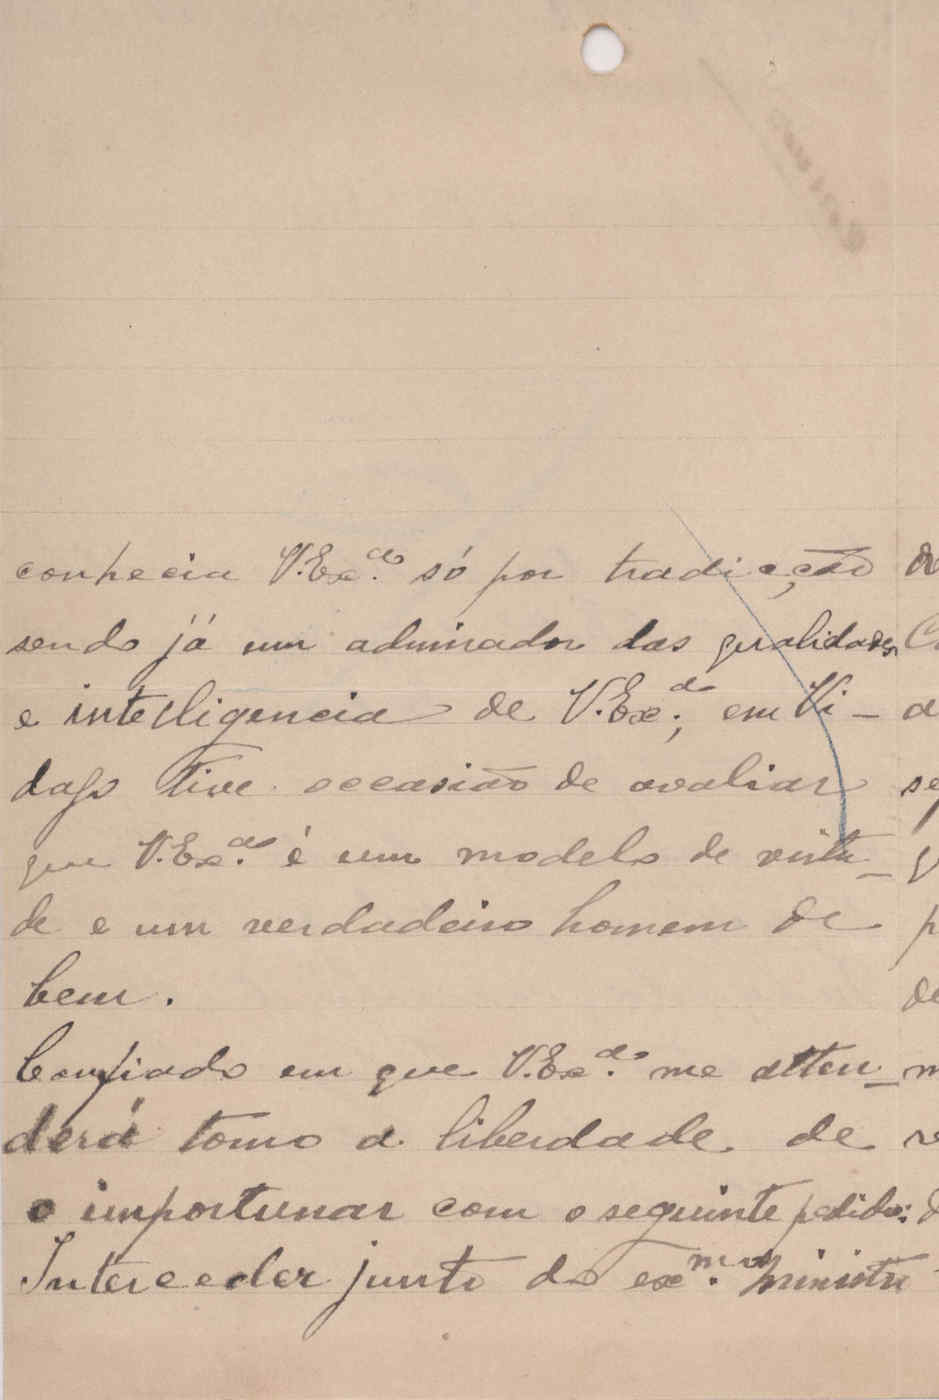 conhecia V.Ex.ª só por tradicção
sendo já um admirador das qualidades
e intelligencia de V.Ex.ª, em Vi-
dago tive occasião de avaliar
que V.Ex.ª é um modelo de virtu-
de e um verdadeiro homem de
bem.
Confiado em que V.Ex.ª me atten-
derá tomo a liberdade de
o importunar com o seguinte pedido:
Interceder junto do ex.mo ministro